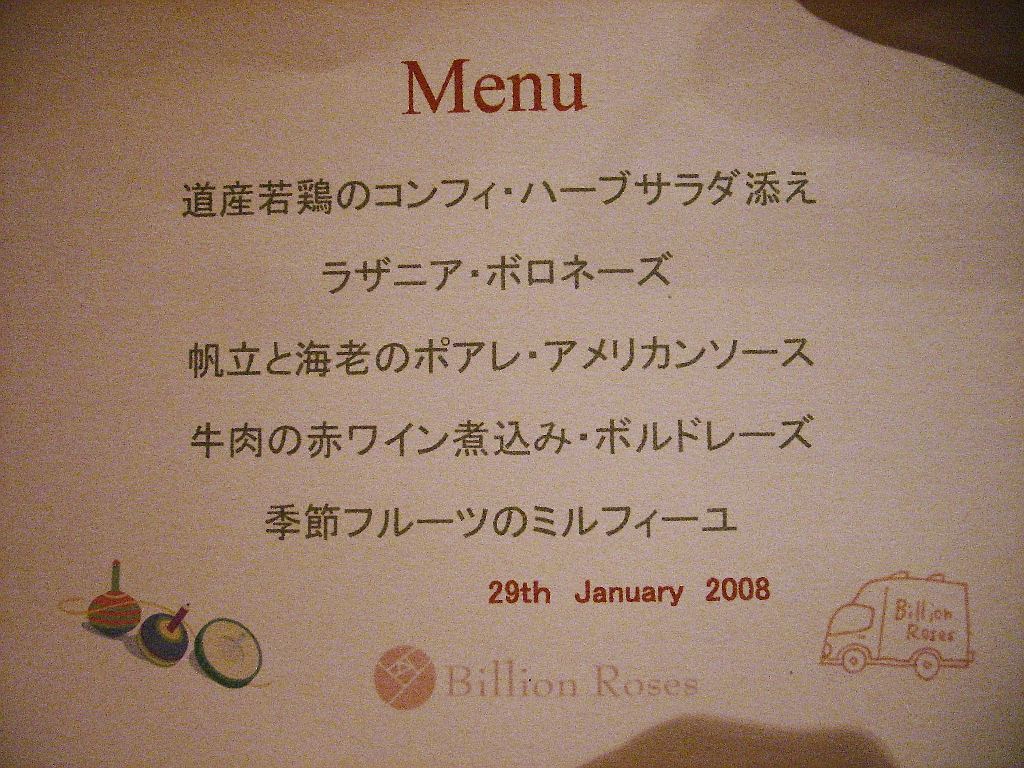 Menu
道産若鶏のコンフィ・ハーブサラダ添え
ラザニア・ボロネーズ
帆立と海老のポアレ・アメリカンソース
牛肉の赤ワイン煮込み・ボルドレーズ
季節フルーツのミルフィーユ
29th January 2008
Billion
Roses
Billion Roses